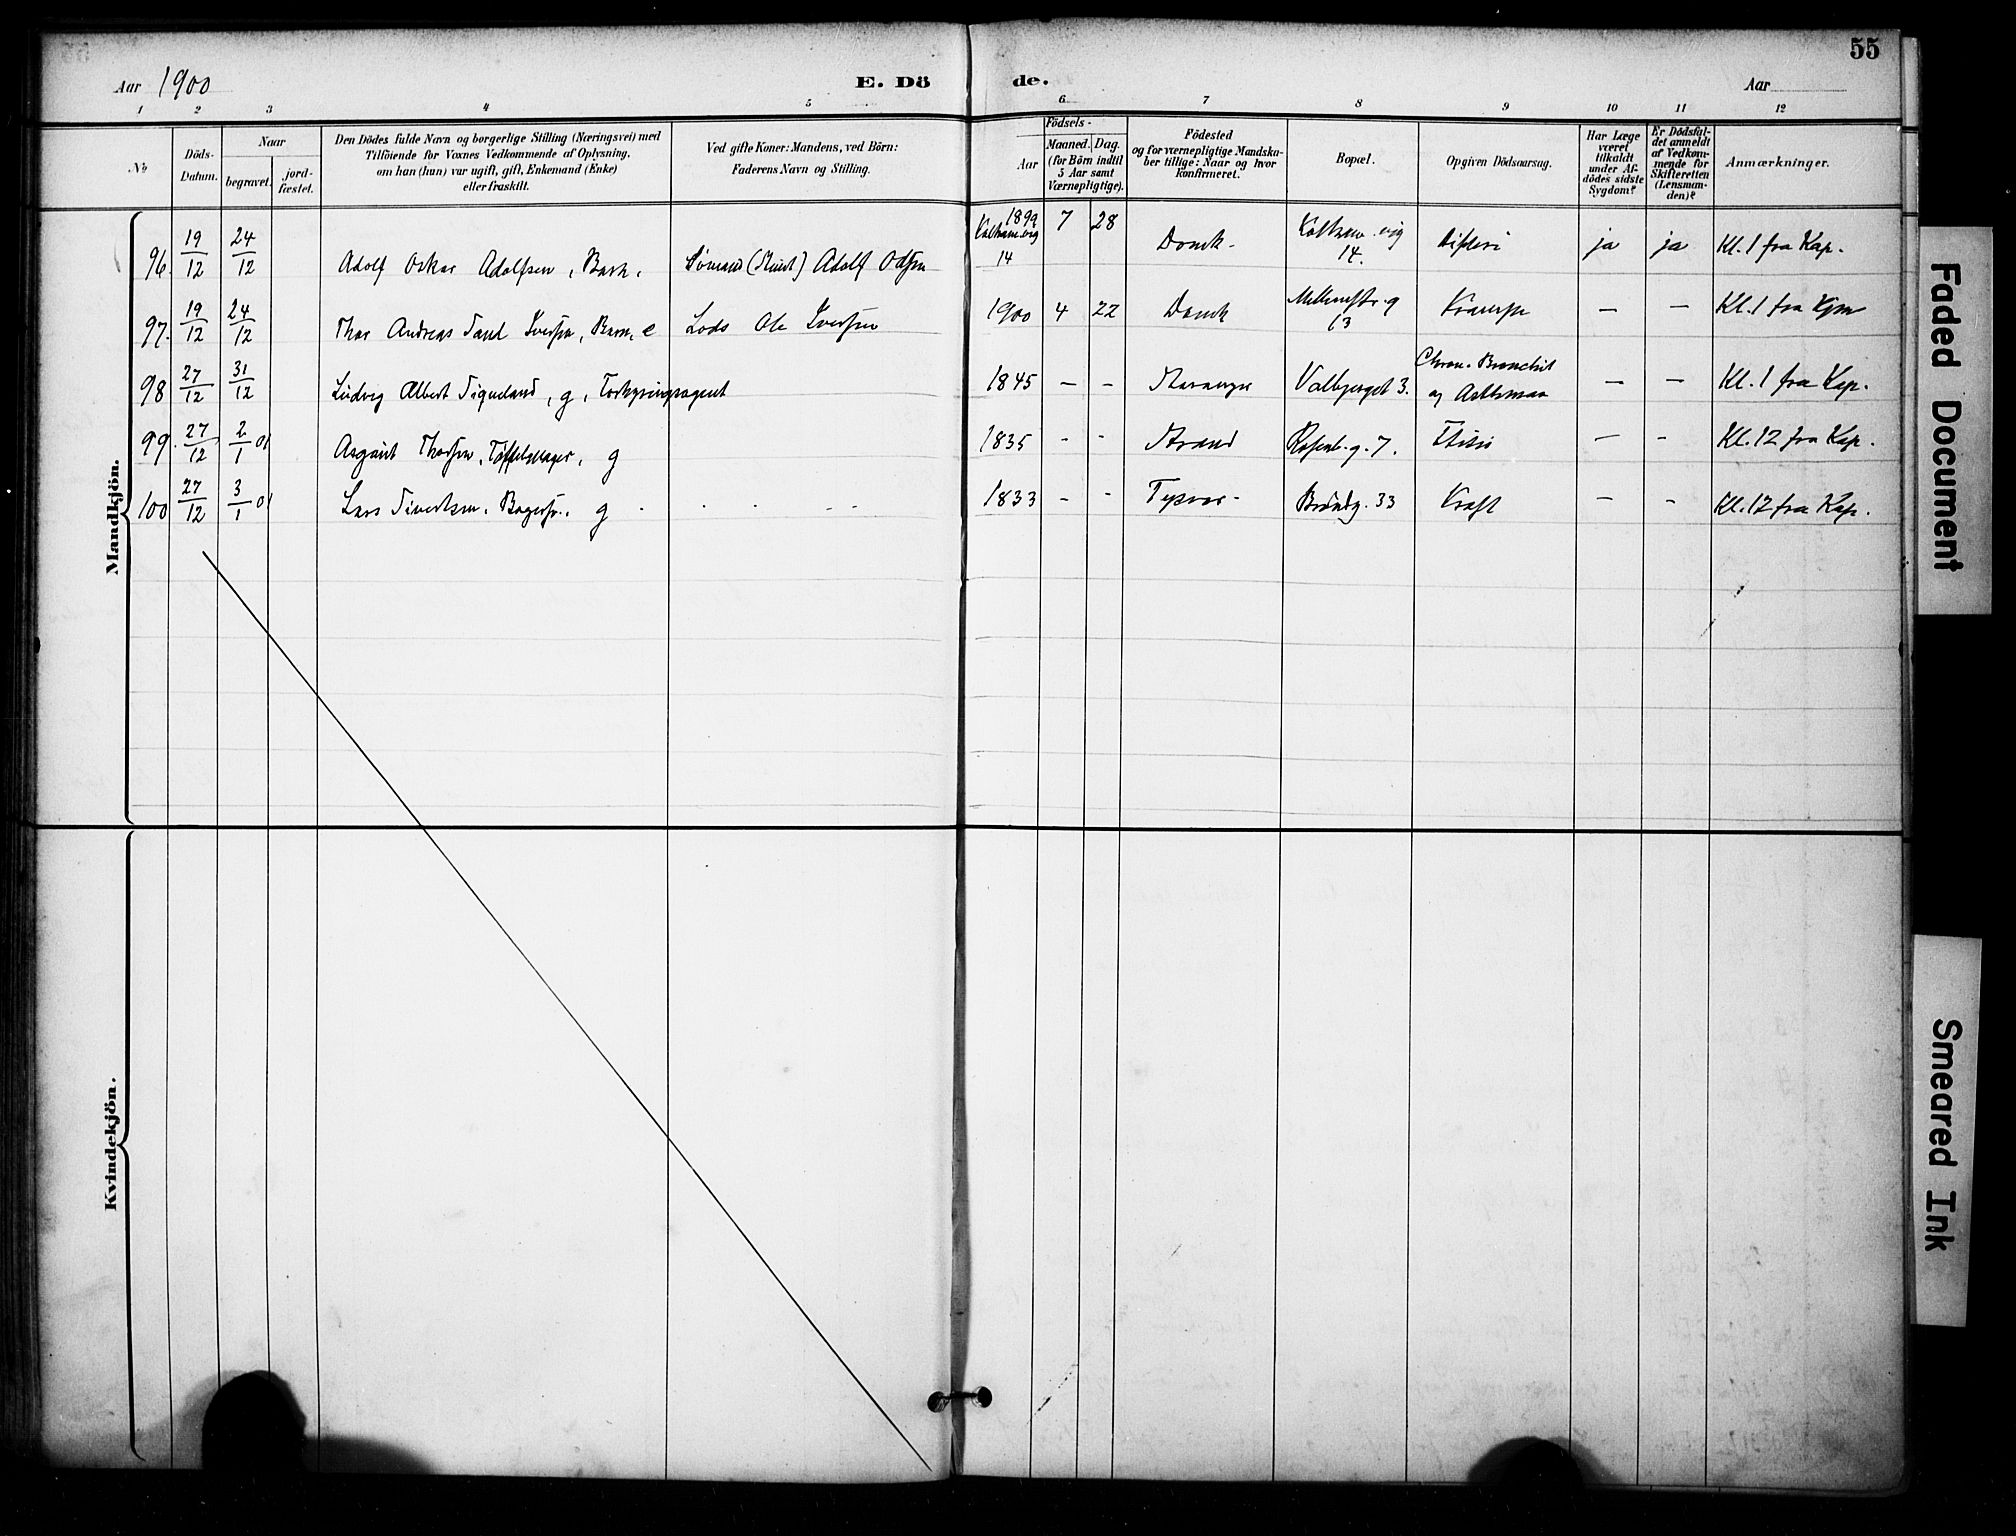 55
Aar 1900
E. Dö
de.
Aar
1 2 3 4 5 6 7 8 9 10 11 12
No
Döds-
Datum.
Naar
begravet.
jord-
fæstet.
Den Dödes fulde Navn og borgerlige Stilling (Næringsvei) med
Tilföiende for Voxnes Vedkommende af Oplysning,
om han (hun) var ugift, gift, Enkemand (Enke)
eller fraskilt.
Ved gifte Koner: Mandens, ved Börn:
Faderens Navn og Stilling.
Födsels-
Aar
Maaned. Dag.
(for Börn indtil
5 Aar samt
Værnepligtige).
Födested
og for værnepligtige Mandska-
ber tillige: Naar og hvor
konfirmeret.
Bopæl.
Opgiven Dödsaarsag.
Har Læge
været
tilkaldt
under Af-
dödes sidste
Sygdom?
Er Dödsfal-
det anmeldt
af Vedkom-
mende for
Skifteretten
(Lensman-
den)?
Anmærkninger.
Mandkjön.
96. 19/12 24/12 Adolf Oskar Adolfsen, Barn, Sömand Adolf 1899 14 7 28 Domk. 14. Difteri ja ja Kl. 1 fra Kap.
97. 19/12 24/12 Thor Andreas Iversen, Barn, e Lods Ole Iversen 1900 4 22 Domk 13 — — Kl. 1 fra
98 27/12 31/12 Ludvig Albert Tigneland, g, 1845 — - Stavanger Valbjerget 3. Chron. Bronchit
og Asthma — — Kl. 1 fra Kap.
99. 27/12 2/1 01 Thorsen, g 1835 - - Strand 7. — - Kl. 12 fra Kap.
100 27/12 3/1 01 Lars Sivertsen, g 1833 - - Tysvær - 33 Kræft — - Kl. 12 fra Kap.
Kvindekjön.
Faded Document
Smeared Ink